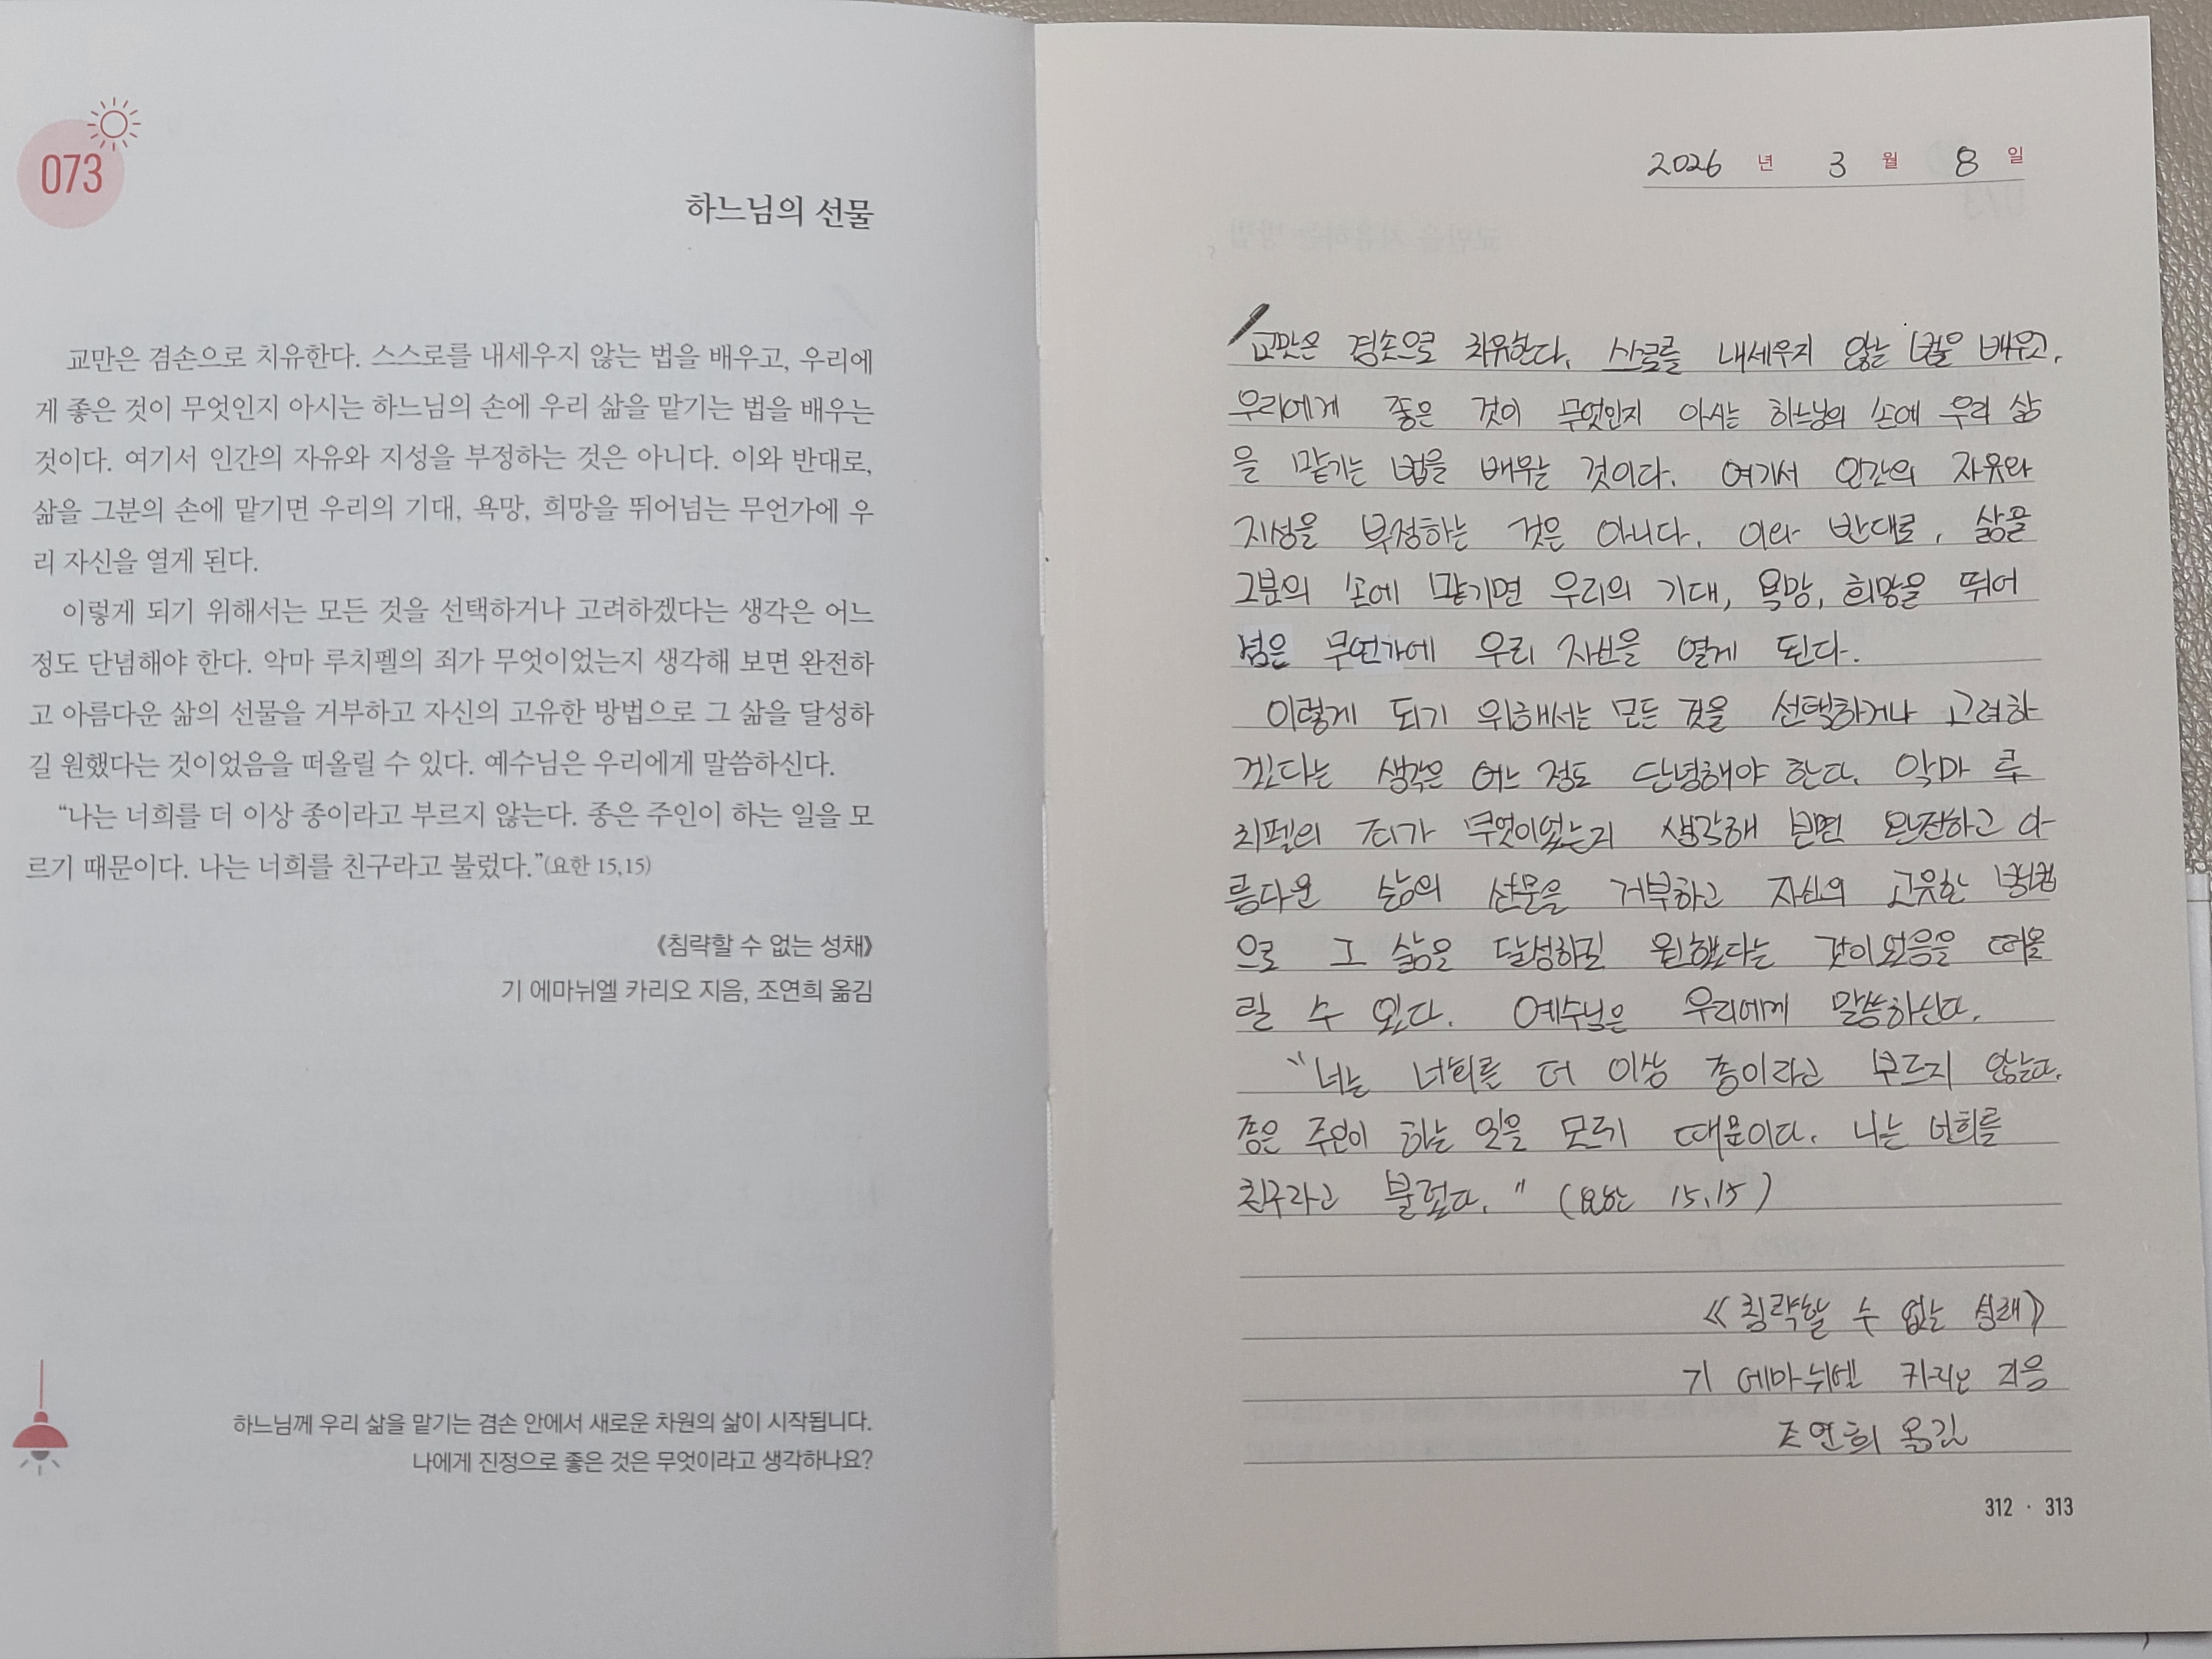 073
하느님의 선물
교만은 겸손으로 치유한다. 스스로를 내세우지 않는 법을 배우고, 우리에
게 좋은 것이 무엇인지 아시는 하느님의 손에 우리 삶을 맡기는 법을 배우는
것이다. 여기서 인간의 자유와 지성을 부정하는 것은 아니다. 이와 반대로,
삶을 그분의 손에 맡기면 우리의 기대, 욕망, 희망을 뛰어넘는 무언가에 우
리 자신을 열게 된다.
이렇게 되기 위해서는 모든 것을 선택하거나 고려하겠다는 생각은 어느
정도 단념해야 한다. 악마 루치펠의 죄가 무엇이었는지 생각해 보면 완전하
고 아름다운 삶의 선물을 거부하고 자신의 고유한 방법으로 그 삶을 달성하
길 원했다는 것이었음을 떠올릴 수 있다. 예수님은 우리에게 말씀하신다.
“나는 너희를 더 이상 종이라고 부르지 않는다. 종은 주인이 하는 일을 모
르기 때문이다. 나는 너희를 친구라고 불렀다.”(요한 15,15)
《침략할 수 없는 성채》
기 에마뉘엘 카리오 지음, 조연희 옮김
하느님께 우리 삶을 맡기는 겸손 안에서 새로운 차원의 삶이 시작됩니다.
나에게 진정으로 좋은 것은 무엇이라고 생각하나요?
2026 년 3 월 8 일
교만은 겸손으로 치유한다. 스스로를 내세우지 않는 법을 배우고,
우리에게 좋은 것이 무엇인지 아시는 하느님의 손에 우리 삶
을 맡기는 법을 배우는 것이다. 여기서 인간의 자유와
지성을 부정하는 것은 아니다. 이와 반대로, 삶을
그분의 손에 맡기면 우리의 기대, 욕망, 희망을 뛰어
넘은 무언가에 우리 자신을 열게 된다.
이렇게 되기 위해서는 모든 것을 선택하거나 고려하
겠다는 생각은 어느 정도 단념해야 한다. 악마 루
치펠의 죄가 무엇이었는지 생각해 보면 완전하고 아
름다운 삶의 선물을 거부하고 자신의 고유한 방법
으로 그 삶을 달성하길 원했다는 것이었음을 떠올
릴 수 있다. 예수님은 우리에게 말씀하신다.
"너는 너희를 더 이상 종이라고 부르지 않는다.
종은 주인이 하는 일을 모르기 때문이다. 나는 너희를
친구라고 불렀다." (요한 15,15)
《침략할 수 없는 성채》
기 에마뉘엘 카리오 지음
조연희 옮김
312 · 313